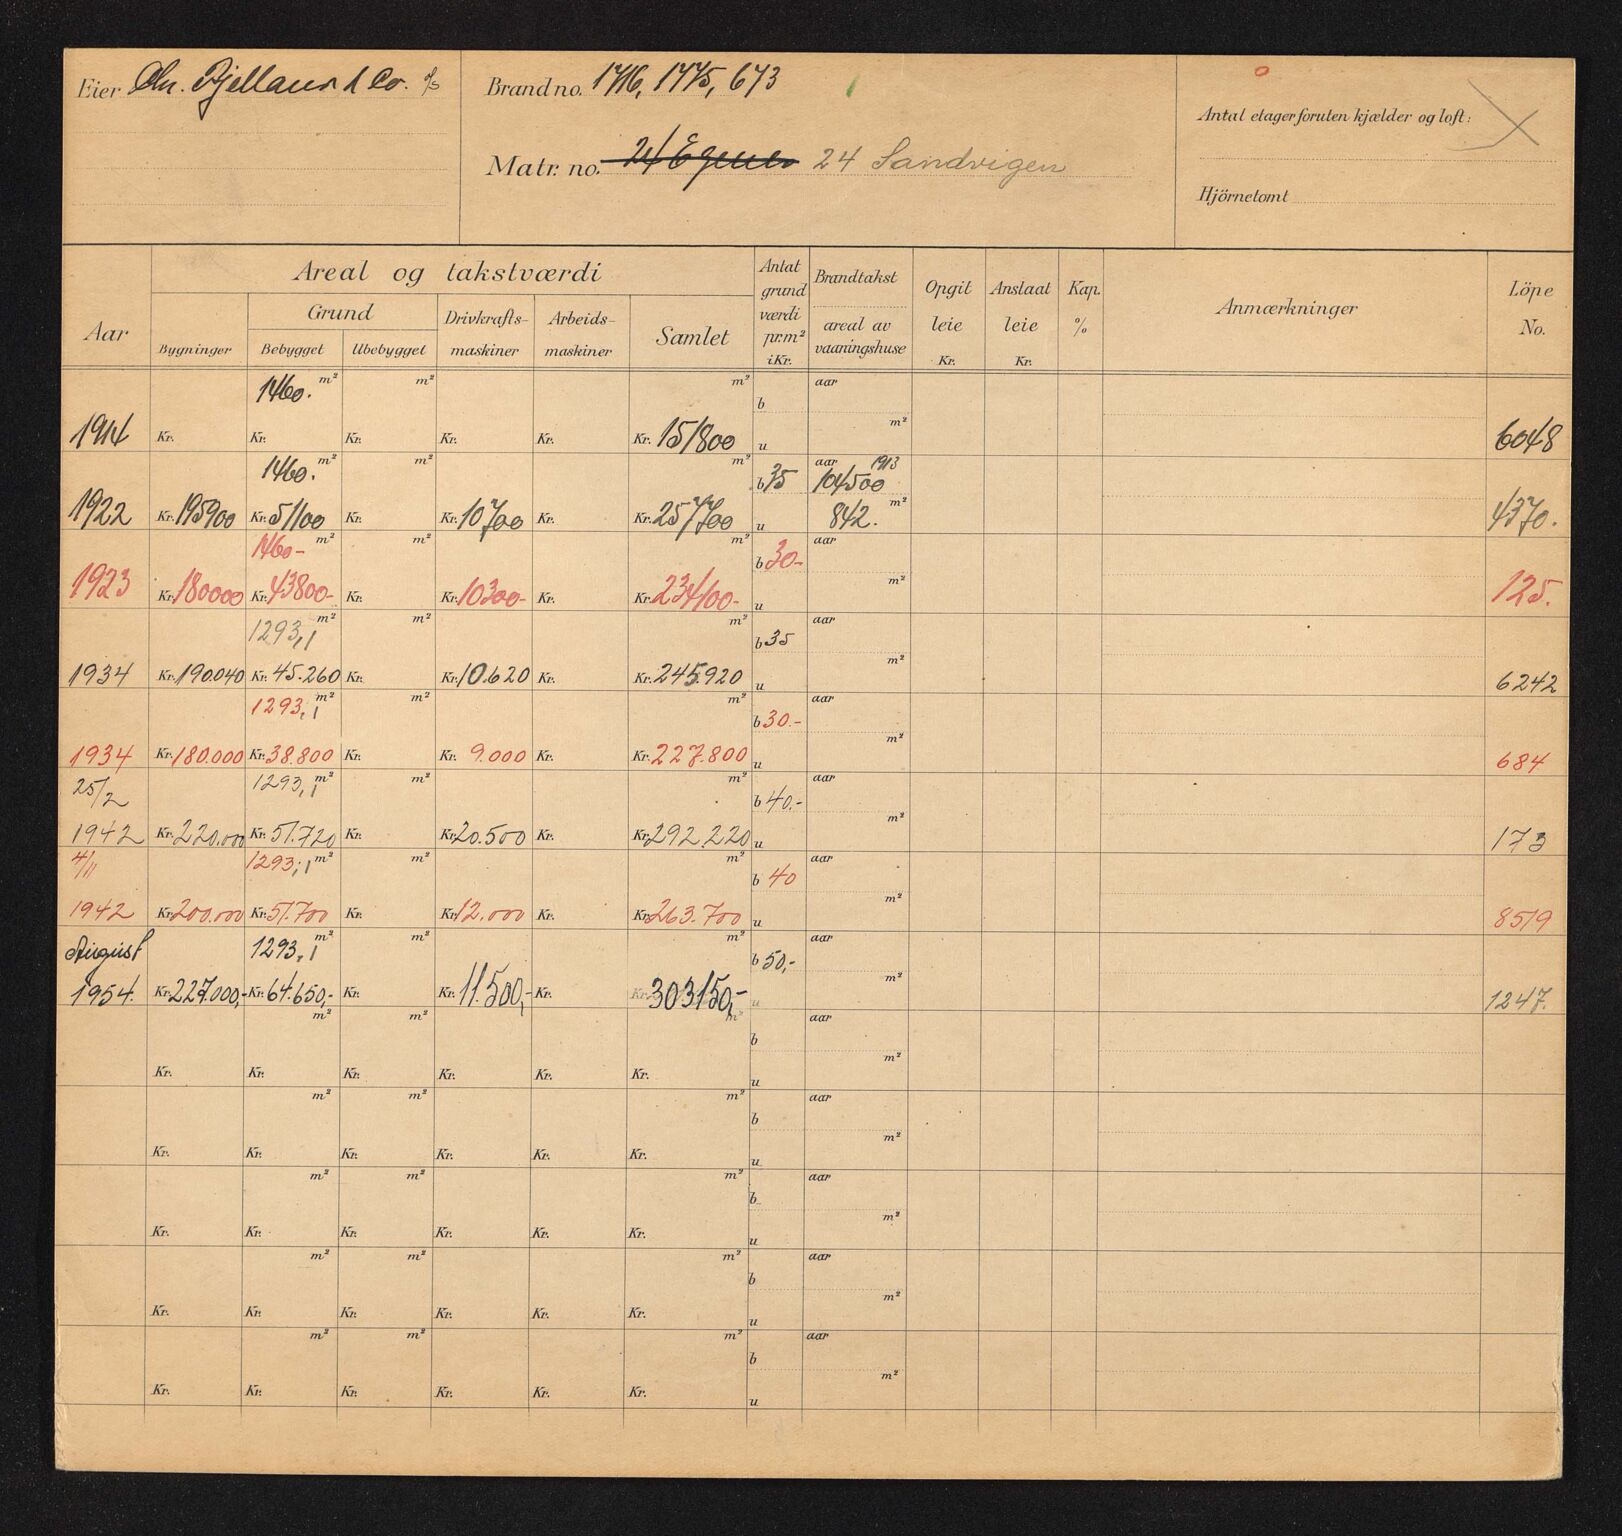 Eier Chr. Bjelland & Co. A/S
Brand no. 1716, 1775, 673
Matr. no. 24 Egenes 24 Sandvigen
Antal etager foruten kjælder og loft:
Hjörnetomt
Aar
Areal og takstværdi
Bygninger
Grund
Bebygget
Ubebygget
Drivkrafts-
maskiner
Arbeids-
maskiner
Samlet
Antat
grund
værdi
pr. m²
i Kr.
Brandtakst
areal av
vaaningshuse
Opgit
leie
Kr.
Anslaat
leie
Kr.
Kap.
%
Anmærkninger
Löpe
No.
1460. m² m² m² b aar
1914 Kr. Kr. Kr. Kr. Kr. Kr. 151800 u m² 6048
1460. m² m² m² b 35 aar 1913 104500
1922 Kr. 195900 Kr. 51100 Kr. Kr. 10700 Kr. Kr. 257700 u 842. m² 4370.
1460- m² m² m² b 30- aar
1923 Kr. 180000 Kr. 43800- Kr. Kr. 10300- Kr. Kr. 234100- u m² 125.
1293,1 m² m² m² b 35 aar
1934 Kr. 190.040 Kr. 45.260 Kr. Kr. 10.620 Kr. Kr. 245.920 u m² 6242
1293,1 m² m² m² b 30.- aar
1934 Kr. 180.000 Kr. 38.800 Kr. Kr. 9.000 Kr. Kr. 227.800 u m² 684
25/2 1293,1 m² m² m² b 40.- aar
1942 Kr. 220.000 Kr. 51.720 Kr. Kr. 20.500 Kr. Kr. 292.220 u m² 173
4/11 1293,1 m² m² m² b 40 aar
1942 Kr. 200.000 Kr. 51.700 Kr. Kr. 12.000 Kr. Kr. 263.700 u m² 8519
August 1293,1 m² m² m² b 50,- aar
1954. Kr. 227.000,- Kr. 64.650,- Kr. Kr. 11.500,- Kr. Kr. 303150,- u m² 1247.
m² m² m² b aar
Kr. Kr. Kr. Kr. Kr. Kr. u m²
m² m² m² b aar
Kr. Kr. Kr. Kr. Kr. Kr. u m²
m² m² m² b aar
Kr. Kr. Kr. Kr. Kr. Kr. u m²
m² m² m² b aar
Kr. Kr. Kr. Kr. Kr. Kr. u m²
m² m² m² b aar
Kr. Kr. Kr. Kr. Kr. Kr. u m²